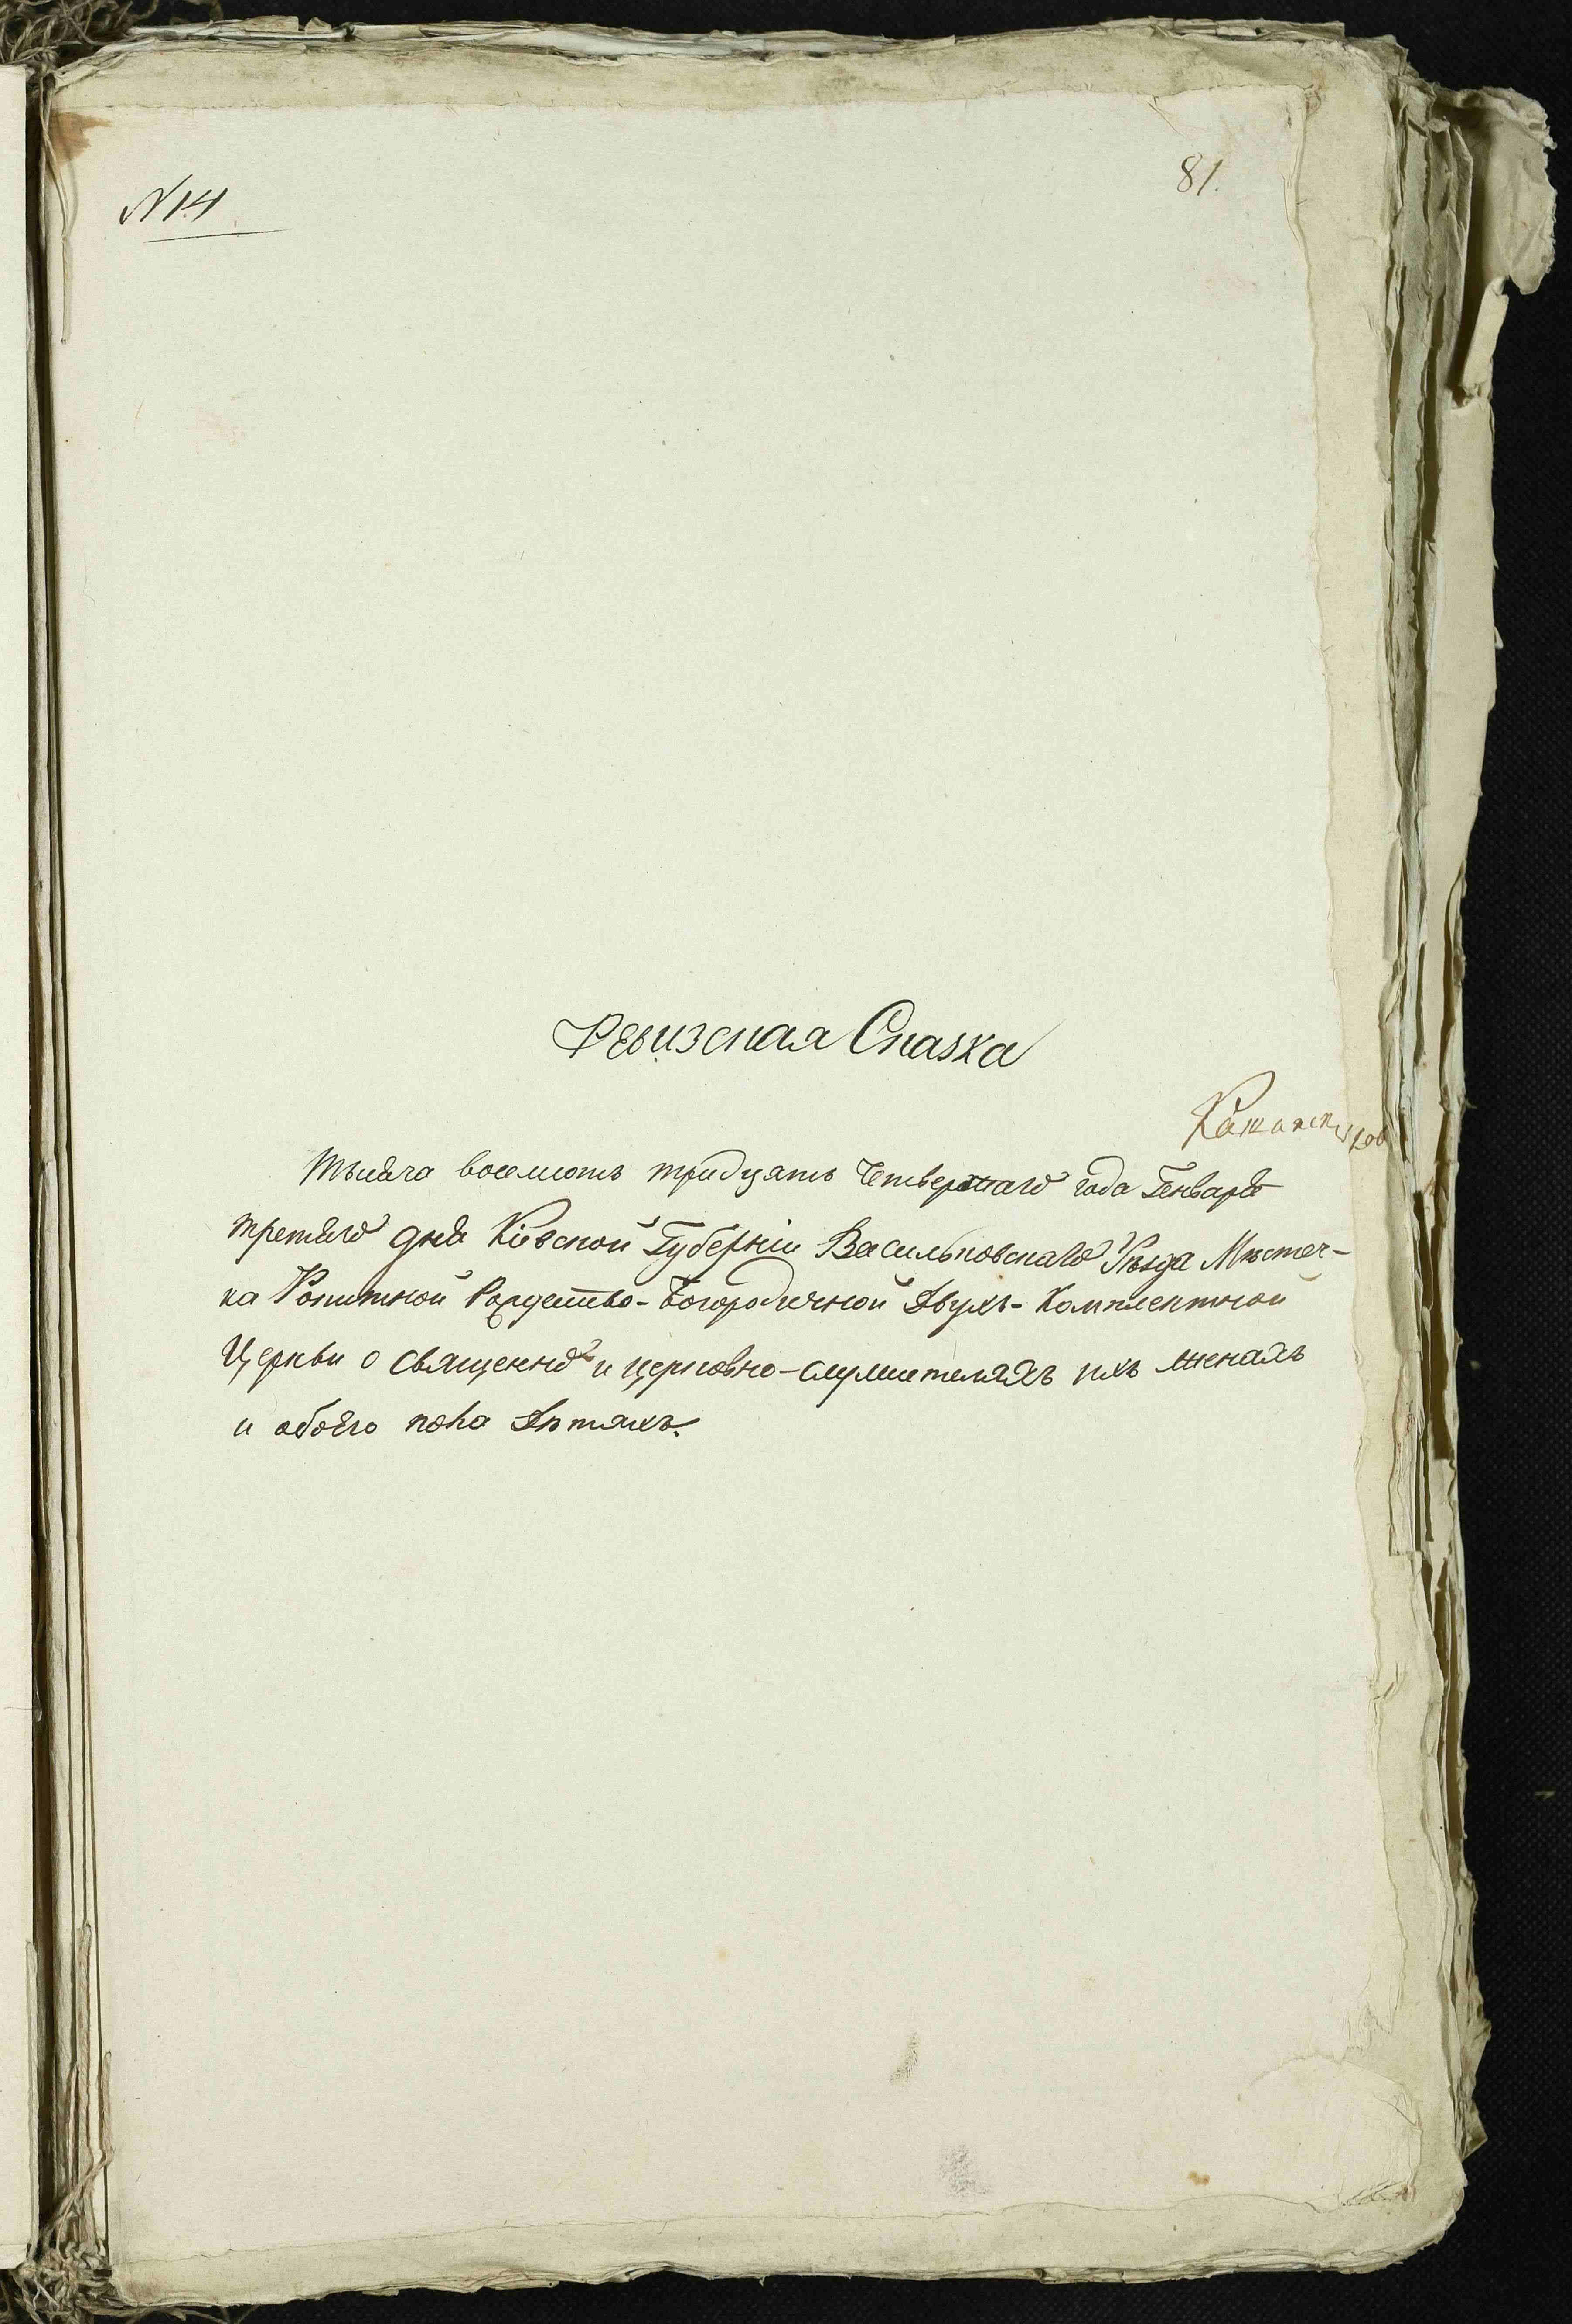 № 14
81.
Ревизская Сказка
Тысяча восемсотъ тридцять Четвертаго года Генваря
третяго дня Кіевской Губерніи Васильковскаго Уѣзда Мѣстеч-
ка Рокитной Рождество-Богородичной Двухъ-Комплектной
Церкви о священно и церковно-служителяхъ ихъ женахъ
и обоего пола Дѣтяхъ.